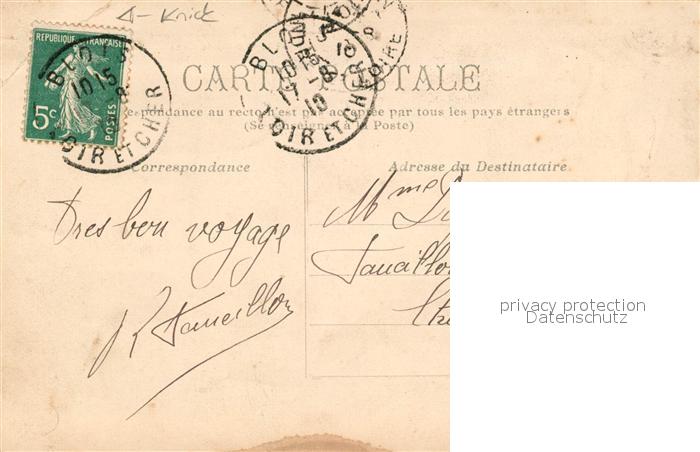 Δ- Knick
REPUBLIQUE FRANÇAISE
5c POSTES
BLOIS
10 15
LOIR ET CHER
BLOIS
10 15
17 -8
10
LOIR ET CHER
LOIRE
CARTE POSTALE
Correspondance au recto n'est pas acceptée par tous les pays étrangers
(Se renseigner à la Poste)
Correspondance
Adresse du Destinataire
Tres bon voyage
Mme
privacy protection
Datenschutz